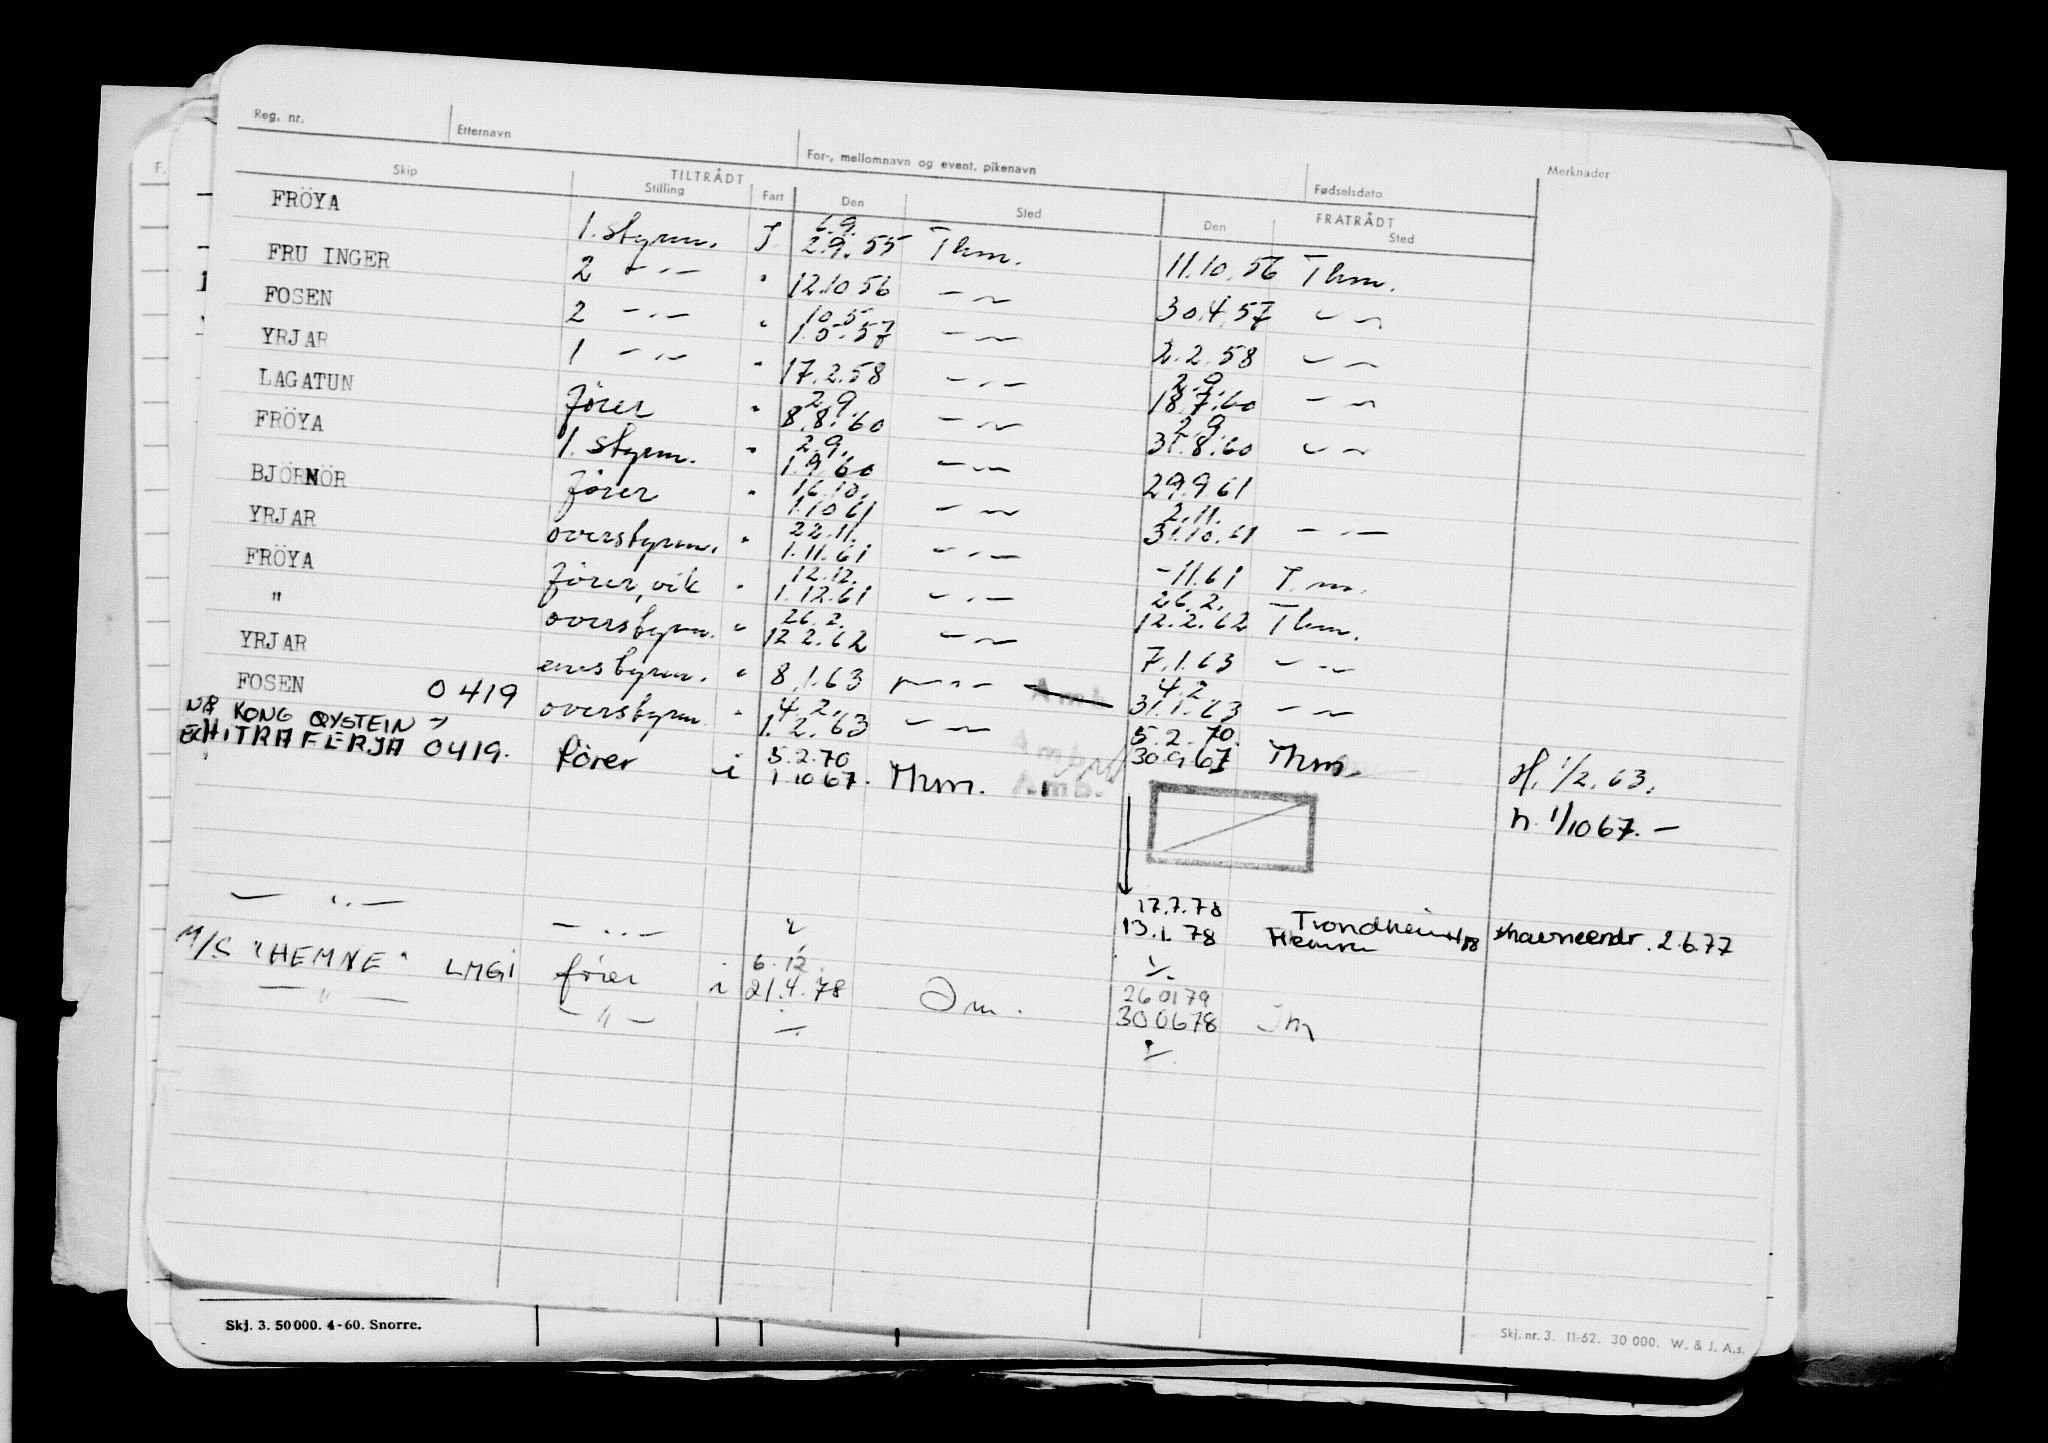 Reg. nr. Etternavn For-, mellomnavn og event. pikenavn Fødselsdato Merknader
F.
TILTRÅDT FRATRÅDT
Skip Stilling Fart Den Sted Den Sted
6.9.
FRÖYA 1. styrm. J. 2.9.55 Thm. 11.10.56 Thm.
FRU INGER 2 — " — " 12.10 56 — " — 30.4.57 — " —
10.5
FOSEN 2 — " — " 1.5.57 — " — 2.2.58 — " —
2.9.
YRJAR 1 — " — " 17.2.58 — " — 18.7.60 — " —
2.9. 2.9
LAGATUN fører " 8.8.60 — " — 31.8.60 — " —
2.9.
FRÖYA 1. styrm. " 1.9.60 — " — 29.9.61
16.10. 2.11.
BJÖRNÖR fører " 1.10 61 — " — 31.10.61 — " —
22.11.
YRJAR overstyrm. " 1.11.61 — " — -11.61 T.m.
12.12. 26.2.
FRÖYA fører, vik " 1.12.61 — " — 12.2.62 Thm.
26.2.
" overstyrm. " 12.2.62 — " — 7.1.63 — " —
4.2
YRJAR enestyrm. " 8.1.63 — " — Amb. 31.1.63 — " —
4.2. 5.2.70.
FOSEN 0419 overstyrm " 1.2.63 — " — Amb. 30.9.67 Thm. H. 1/2.63.
NÅ KONG ØYSTEIN
5.2.70
EX HITRAFERJA 0419. fører i 1.10 67. Thm. Amb. n. 1/10 67. —
17.7.78 Trondheim
— " — — " — " 13.1.78 Hemne 2.6.77
6.12. 260179
M/S "HEMNE" LMGI fører i 21.4.78 300678
— " — — " —
Skj. 3. 50 000. 4-60. Snorre.
Skj. nr. 3. 11-62. 30 000. W. & J. A.s.